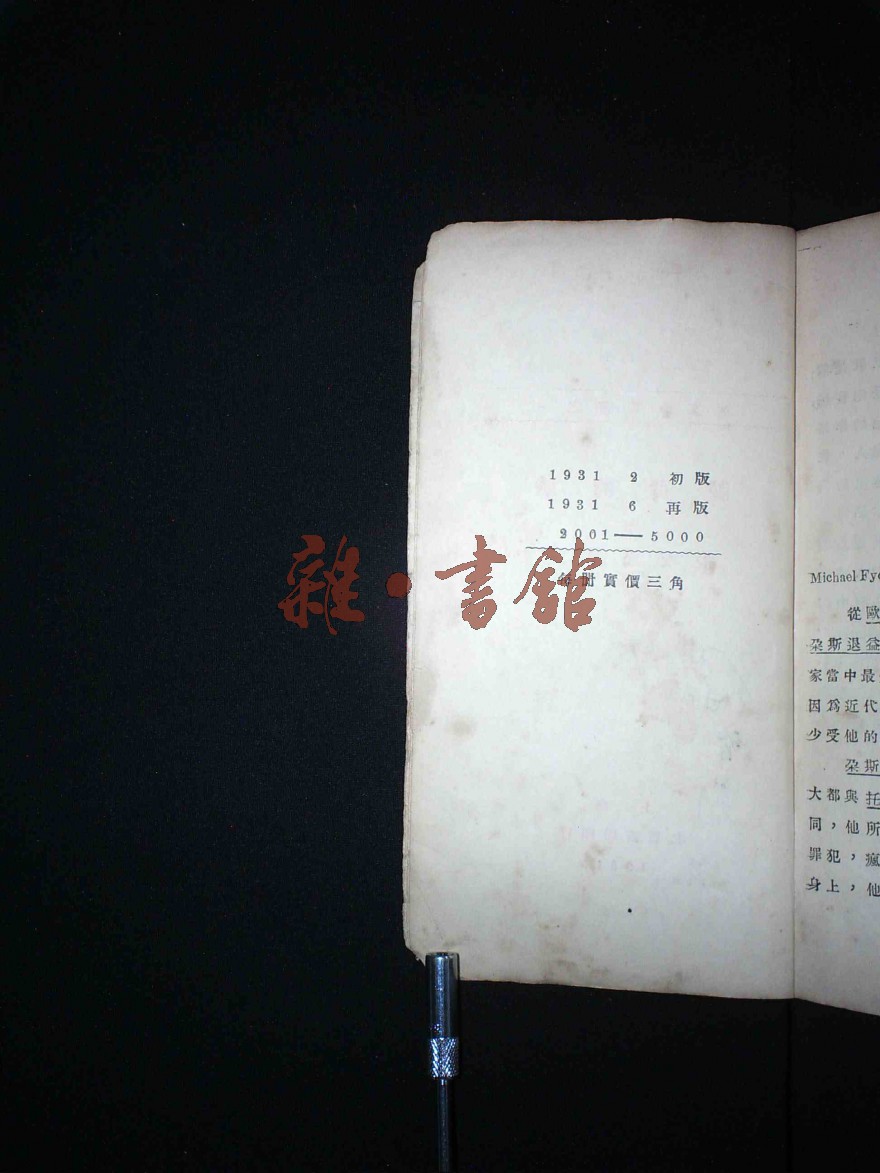 1931 2 初版
1931 6 再版
2001——5000
每冊實價三角
雜·書館
Michael Fyo
從歐
朶斯退益
家當中最
因爲近代
少受他的
朶斯
大都與托
同，他所
罪犯，瘋
身上，他